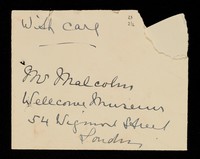 With care
Mr Malcolm
Wellcome Museum
54 Wigmore Street
London